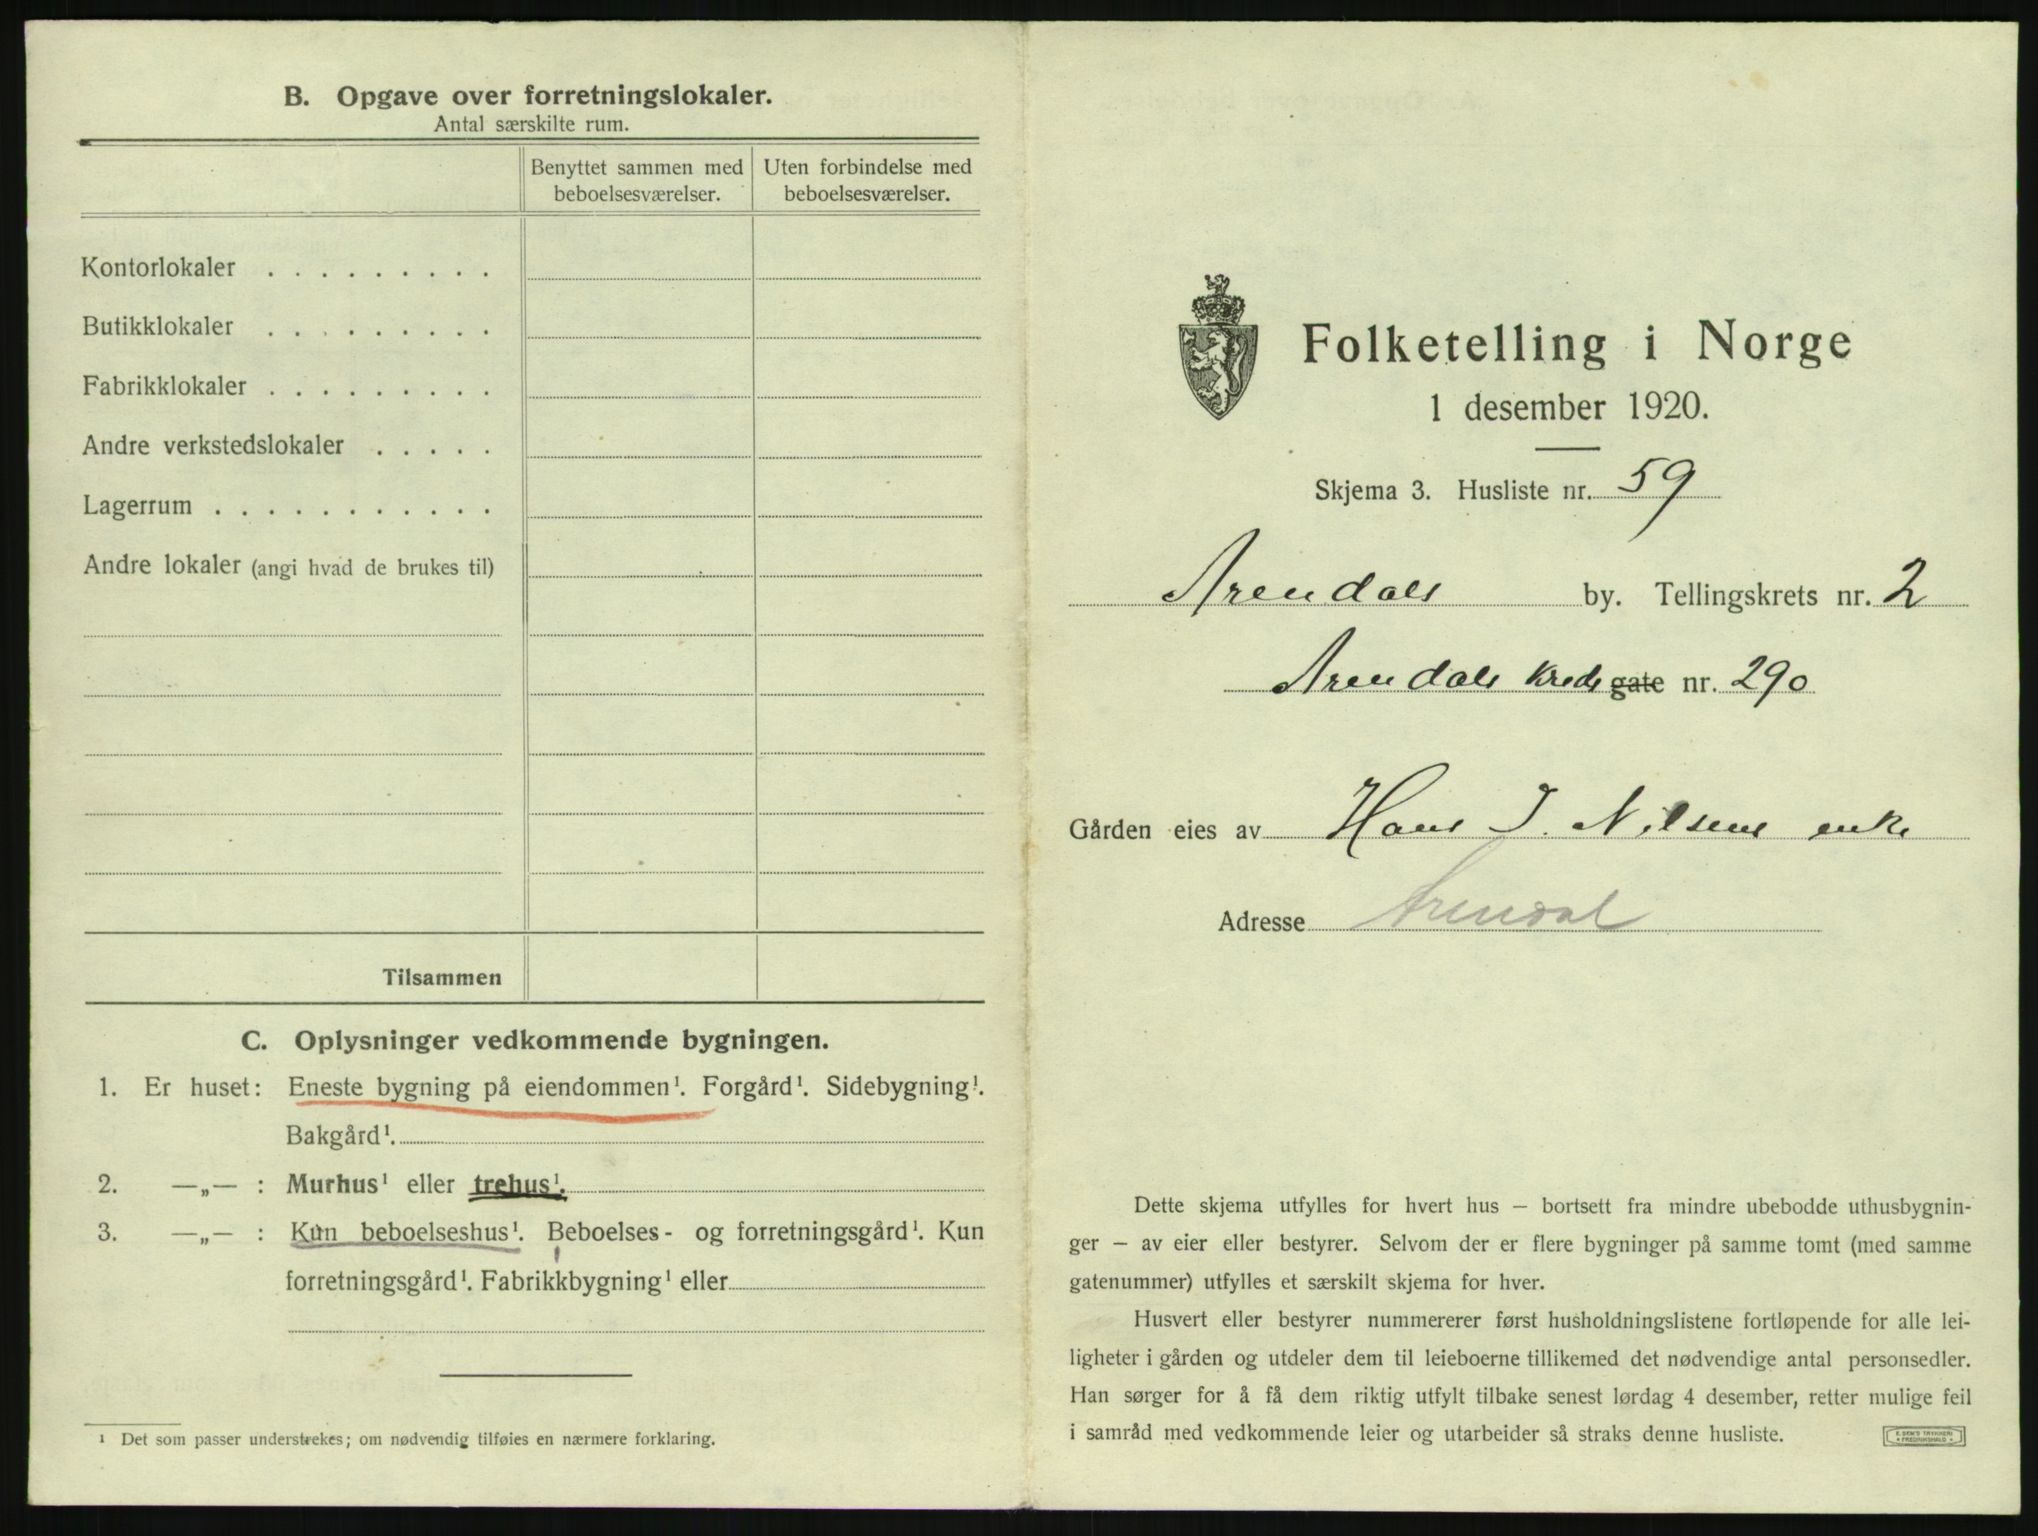 B. Opgave over forretningslokaler.
Antal særskilte rum.
Benyttet sammen med beboelsesværelser.
Uten forbindelse med beboelsesværelser.
Kontorlokaler . . . . . . . . .
Butikklokaler . . . . . . . . .
Fabrikklokaler . . . . . . . . .
Andre verkstedslokaler . . . . .
Lagerrum . . . . . . . . . . .
Andre lokaler (angi hvad de brukes til)
Tilsammen
C. Oplysninger vedkommende bygningen.
1. Er huset: Eneste bygning på eiendommen¹. Forgård¹. Sidebygning¹.
Bakgård¹.
2. —„— : Murhus¹ eller trehus¹.
3. —„— : Kun beboelseshus¹. Beboelses- og forretningsgård¹. Kun
forretningsgård¹. Fabrikkbygning¹ eller
¹ Det som passer understrekes; om nødvendig tilføies en nærmere forklaring.
Folketelling i Norge
1 desember 1920.
Skjema 3. Husliste nr. 59
Arendals by. Tellingskrets nr. 2
Arendals kreds gate nr. 290
Gården eies av Hans J. Nilsens enke
Adresse Arendal
Dette skjema utfylles for hvert hus — bortsett fra mindre ubebodde uthusbygnin-
ger — av eier eller bestyrer. Selvom der er flere bygninger på samme tomt (med samme
gatenummer) utfylles et særskilt skjema for hver.
Husvert eller bestyrer nummererer først husholdningslistene fortløpende for alle lei-
ligheter i gården og utdeler dem til leieboerne tillikemed det nødvendige antal personsedler.
Han sørger for å få dem riktig utfylt tilbake senest lørdag 4 desember, retter mulige feil
i samråd med vedkommende leier og utarbeider så straks denne husliste.
E. SEM'S TRYKKERI
• FREDRIKSHALD •